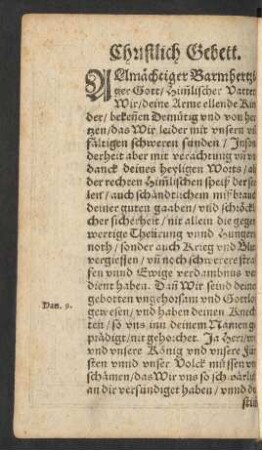 Christlich Gebett.
Allmächtiger Barmhertzi
ger Gott/ Himlischer Vatter
Wir/deine Arme ellende Kin
der/ bekeñen Demütig vnd von her
tzen/das Wir leider mit vnsern vil
fältigen schweren sünden / Inson
derheit aber mit verachtung vñ vn
danck deines heyligen Worts/ als
der rechten Himlischen speiß der see
len/ auch schändtlichem mißbrauch
deiner guten gaaben/ vnd schröckli
cher sicherheit / nit allein die gegen
wertige Theürung vnnd Hungers
noth / sonder auch Krieg vnd Blut
vergiessen / vñ noch schwerere straf
fen vnnd Ewige verdambnus ver
dient haben. Dañ Wir seind deinen
gebotten vngehorsam vnd Gottloß
Dan. 9. gewesen/ vnd haben deinen Knech
ten / so vns inn deinem Namen ge
prädigt/nit gehorchet. Ja Herr/wir
vnd vnsere König vnd vnsere Für
sten vnnd vnser Volck müssen vns
schämen/das Wir vns so schwärlich
an dir versündiget haben / vnnd de